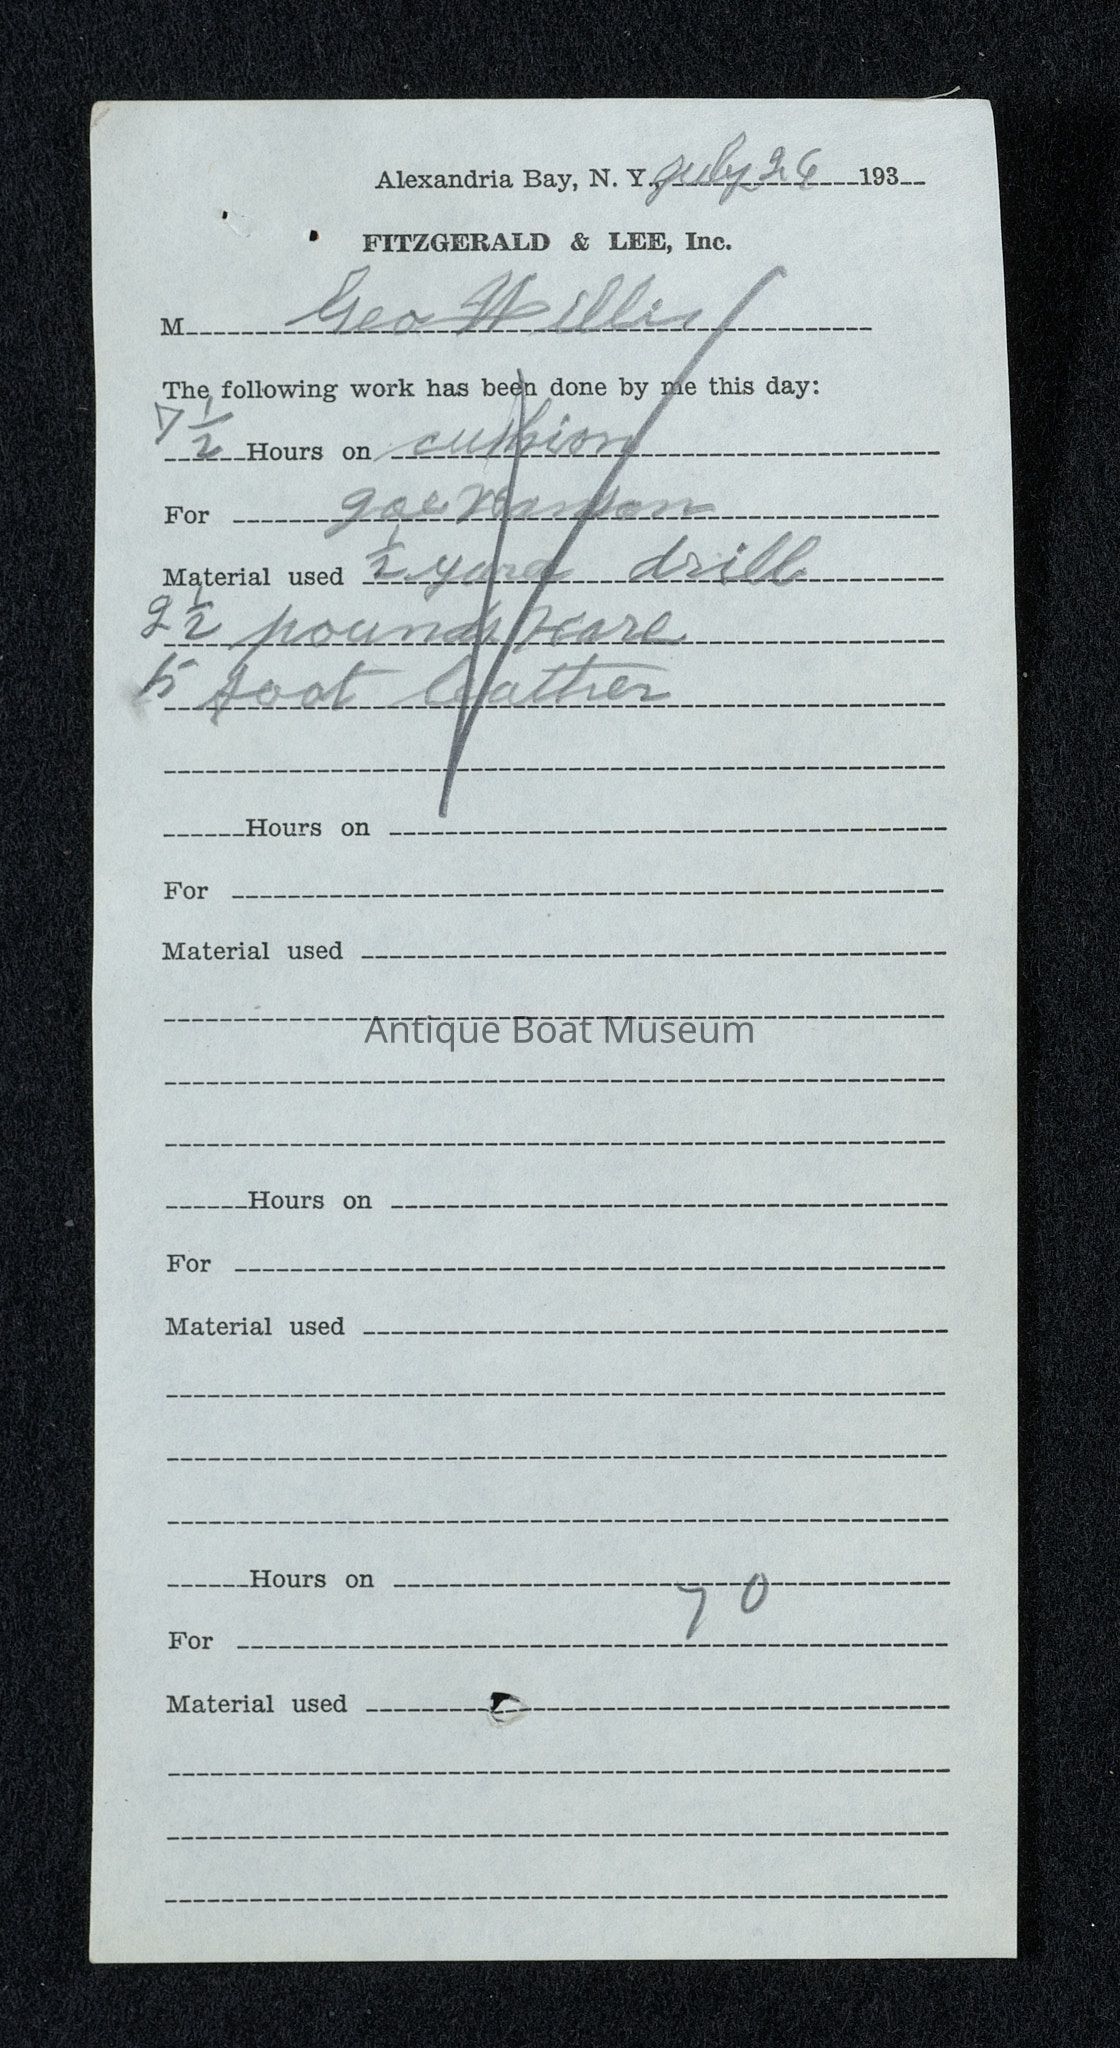 Alexandria Bay, N. Y., July 26 193
FITZGERALD & LEE, Inc.
M Geo Willis
The following work has been done by me this day:
7 1/2 Hours on cushion
For Joe
Material used 1/2 yard drill
2 1/2 pounds hare
foot leather
Hours on
For
Material used
Antique Boat Museum
Hours on
For
Material used
Hours on
70
For
Material used